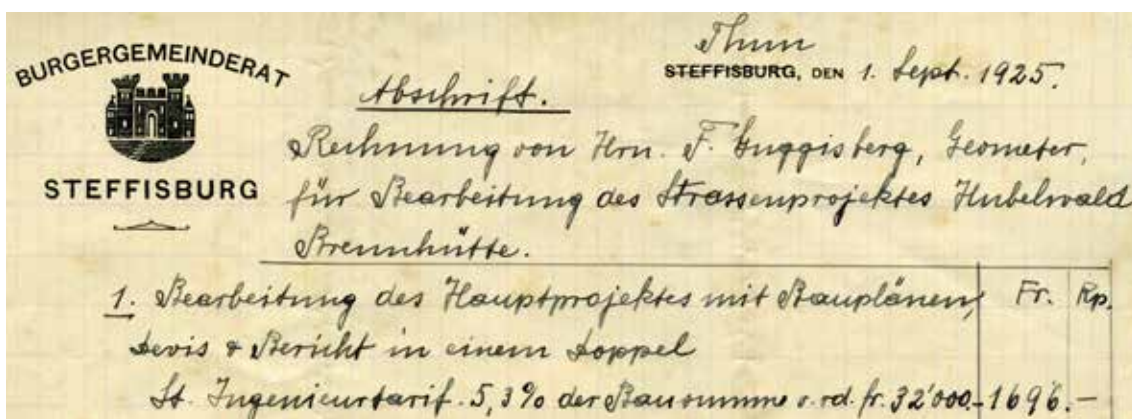 BURGERGEMEINDERAT
STEFFISBURG
Thun
STEFFISBURG, DEN 1. Sept. 1925.
Abschrift.
Rechnung von Hrn. F. Guggisberg, Geometer,
für Bearbeitung des Strassenprojektes Hubelwald
Brennhütte.
Fr. Rp.
1. Bearbeitung des Hauptprojektes mit Bauplänen,
Devis & Bericht in einem Doppel
lt. Ingenieurtarif. 5,3% der Bausumme v. rd. fr. 32'000.- 1696.-